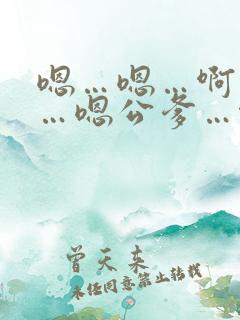 嗯…嗯…啊
…嗯公爹…
曾天来
未经同意禁止转载